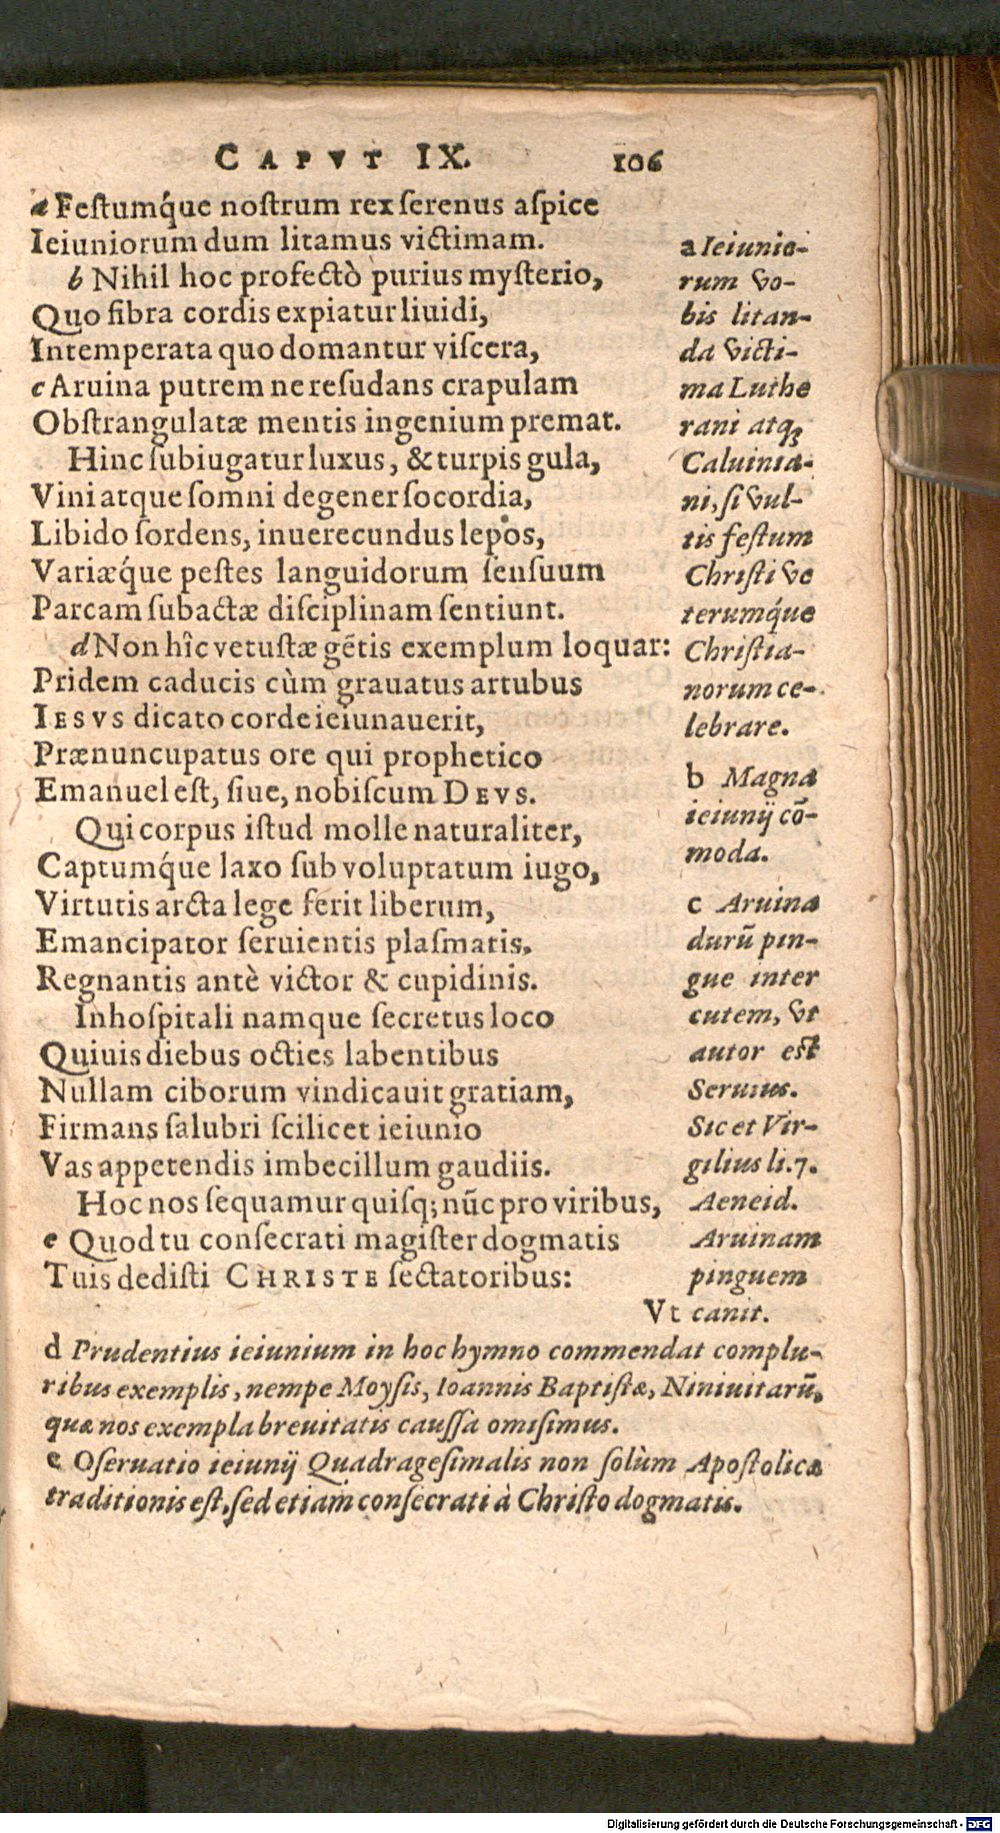 CAPVT IX. 106
a Feſtumq́ue noſtrum rex ſerenus aſpice
Ieiuniorum dum litamus victimam.
b Nihil hoc profectò purius myſterio,
Quo fibra cordis expiatur liuidi,
Intemperata quo domantur viſcera,
c Aruina putrem ne reſudans crapulam
Obſtrangulatæ mentis ingenium premat.
Hinc ſubiugatur luxus, & turpis gula,
Vini atque ſomni degener ſocordia,
Libido ſordens, inuerecundus lepos,
Variæq́ue peſtes languidorum ſenſuum
Parcam ſubactæ diſciplinam ſentiunt.
d Non hîc vetuſtæ gētis exemplum loquar:
Pridem caducis cùm grauatus artubus
IESVS dicato corde ieiunauerit,
Prænuncupatus ore qui prophetico
Emanuel eſt, ſiue, nobiſcum DEVS.
Qui corpus iſtud molle naturaliter,
Captumq́ue laxo ſub voluptatum iugo,
Virtutis arcta lege ferit liberum,
Emancipator ſeruientis plaſmatis,
Regnantis antè victor & cupidinis.
Inhoſpitali namque ſecretus loco
Quiuis diebus octies labentibus
Nullam ciborum vindicauit gratiam,
Firmans ſalubri ſcilicet ieiunio
Vas appetendis imbecillum gaudiis.
Hoc nos ſequamur quiſq; nūc pro viribus,
e Quod tu conſecrati magiſter dogmatis
Tuis dediſti CHRISTE ſectatoribus:
Vt canit.
a Ieiunio-
rum vo-
bis litan-
da victi-
ma Luthe
rani atq;
Caluinia-
ni, ſi vul-
tis feſtum
Chriſti ve
terumq́ue
Chriſtia-
norum ce-
lebrare.
b Magna
ieiunij cō-
moda.
c Aruina
durū pin-
gue inter
cutem, vt
autor eſt
Seruius.
Sic et Vir-
gilius li.7.
Aeneid.
Aruinam
pinguem
d Prudentius ieiunium in hoc hymno commendat complu-
ribus exemplis, nempe Moyſis, Ioannis Baptiſtæ, Niniuitarū,
quæ nos exempla breuitatis cauſſa omiſimus.
e Oſeruatio ieiunij Quadrageſimalis non ſolùm Apoſtolicæ
traditionis eſt, ſed etiam conſecrati à Chriſto dogmatis.
Digitalisierung gefördert durch die Deutsche Forschungsgemeinschaft - DFG